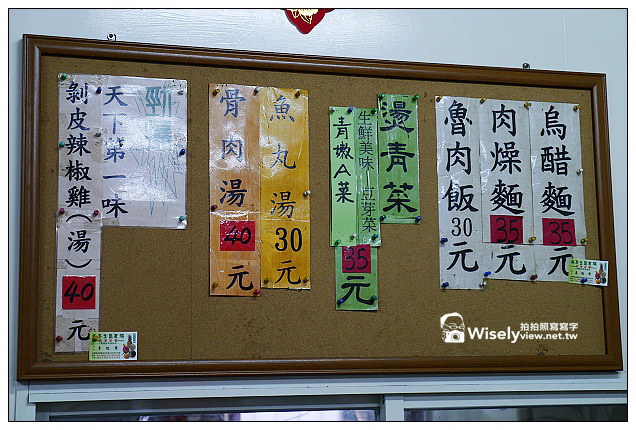 烏醋麵35元
肉燥麵35元
魯肉飯30元
燙青菜
生鮮美味 豆芽菜
青嫩A菜
35元
魚丸湯30元
骨肉湯40元
天下第一味
剝皮辣椒雞(湯)40元
拍拍照寫寫字
Wisely
view.net.tw